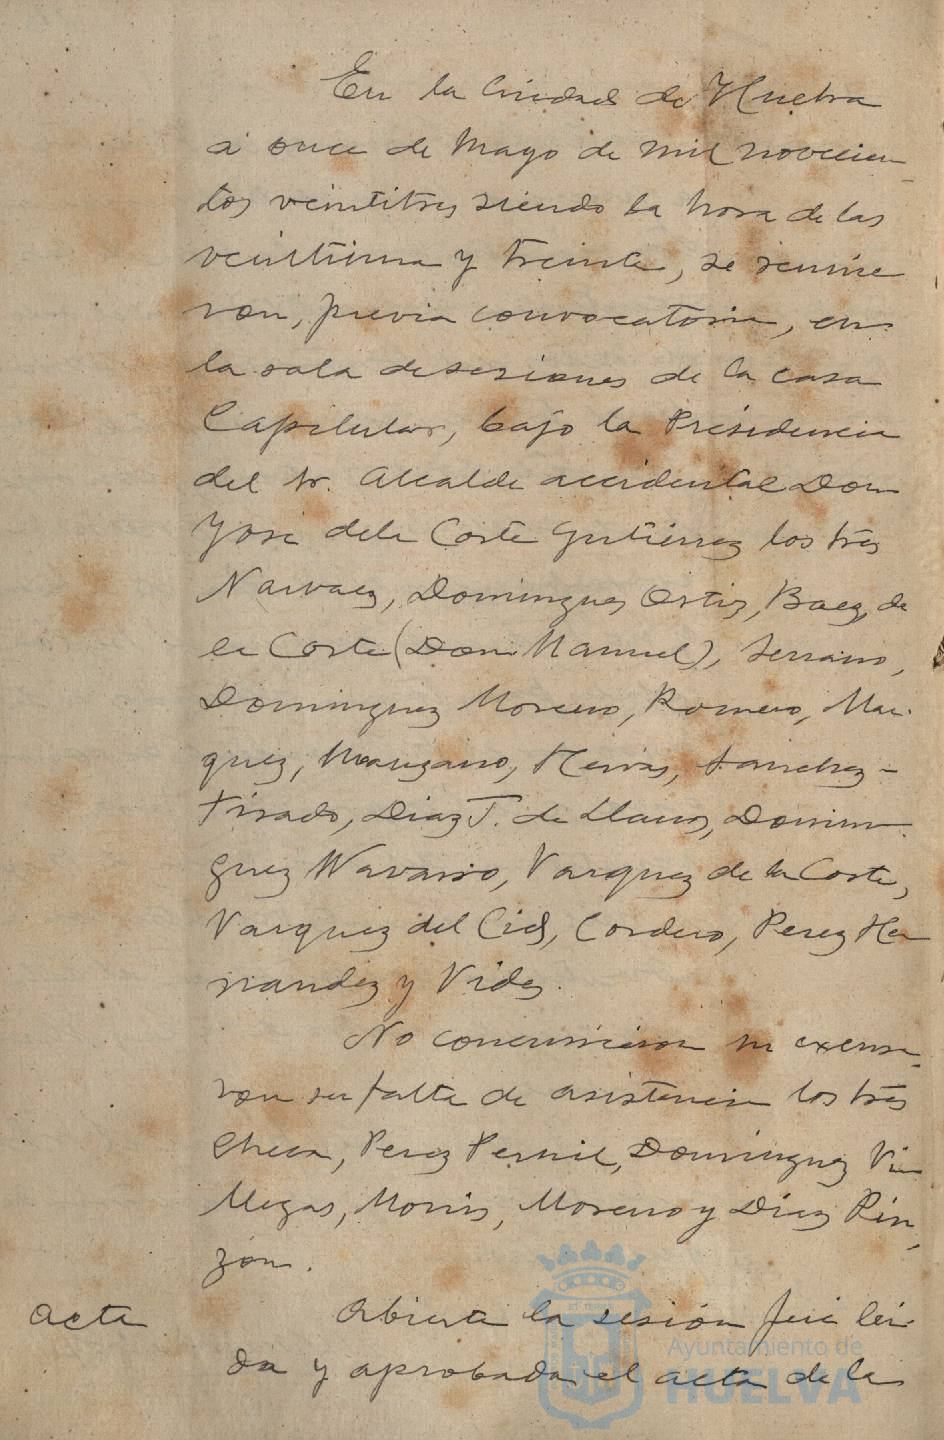 En la Ciudad de Huelva
a once de Mayo de mil novecien-
tos veintitres siendo la hora de las
veintiuna y treinta, se reunie
ron, previa convocatoria, en
la sala de sesiones de la casa
Capitular, bajo la Presidencia
del Sr. Alcalde accidental Don
José de la Corte Gutierrez los Sres
Narvaez, Dominguez Ortiz, Baez, de
la Corte (Don Manuel), Serrano,
Dominguez Moreno, Romero, Mar-
quez, Manzano, Hervas, Sanchez-
Tirado, Diaz J. de Llanos, Domin-
guez Navarro, Vazquez de la Corte,
Vazquez del Cid, Cordero, Perez Her
nandez y Vides.
No concurrieron ni excusa-
ron su falta de asistencia los Sres
Checa, Perez Pernil, Dominguez Vi
llegas, Moreno y Diaz Pin-
zon.
Acta Abierta la sesión fué lei-
da y aprobada el acta de la
Ayuntamiento de
HUELVA